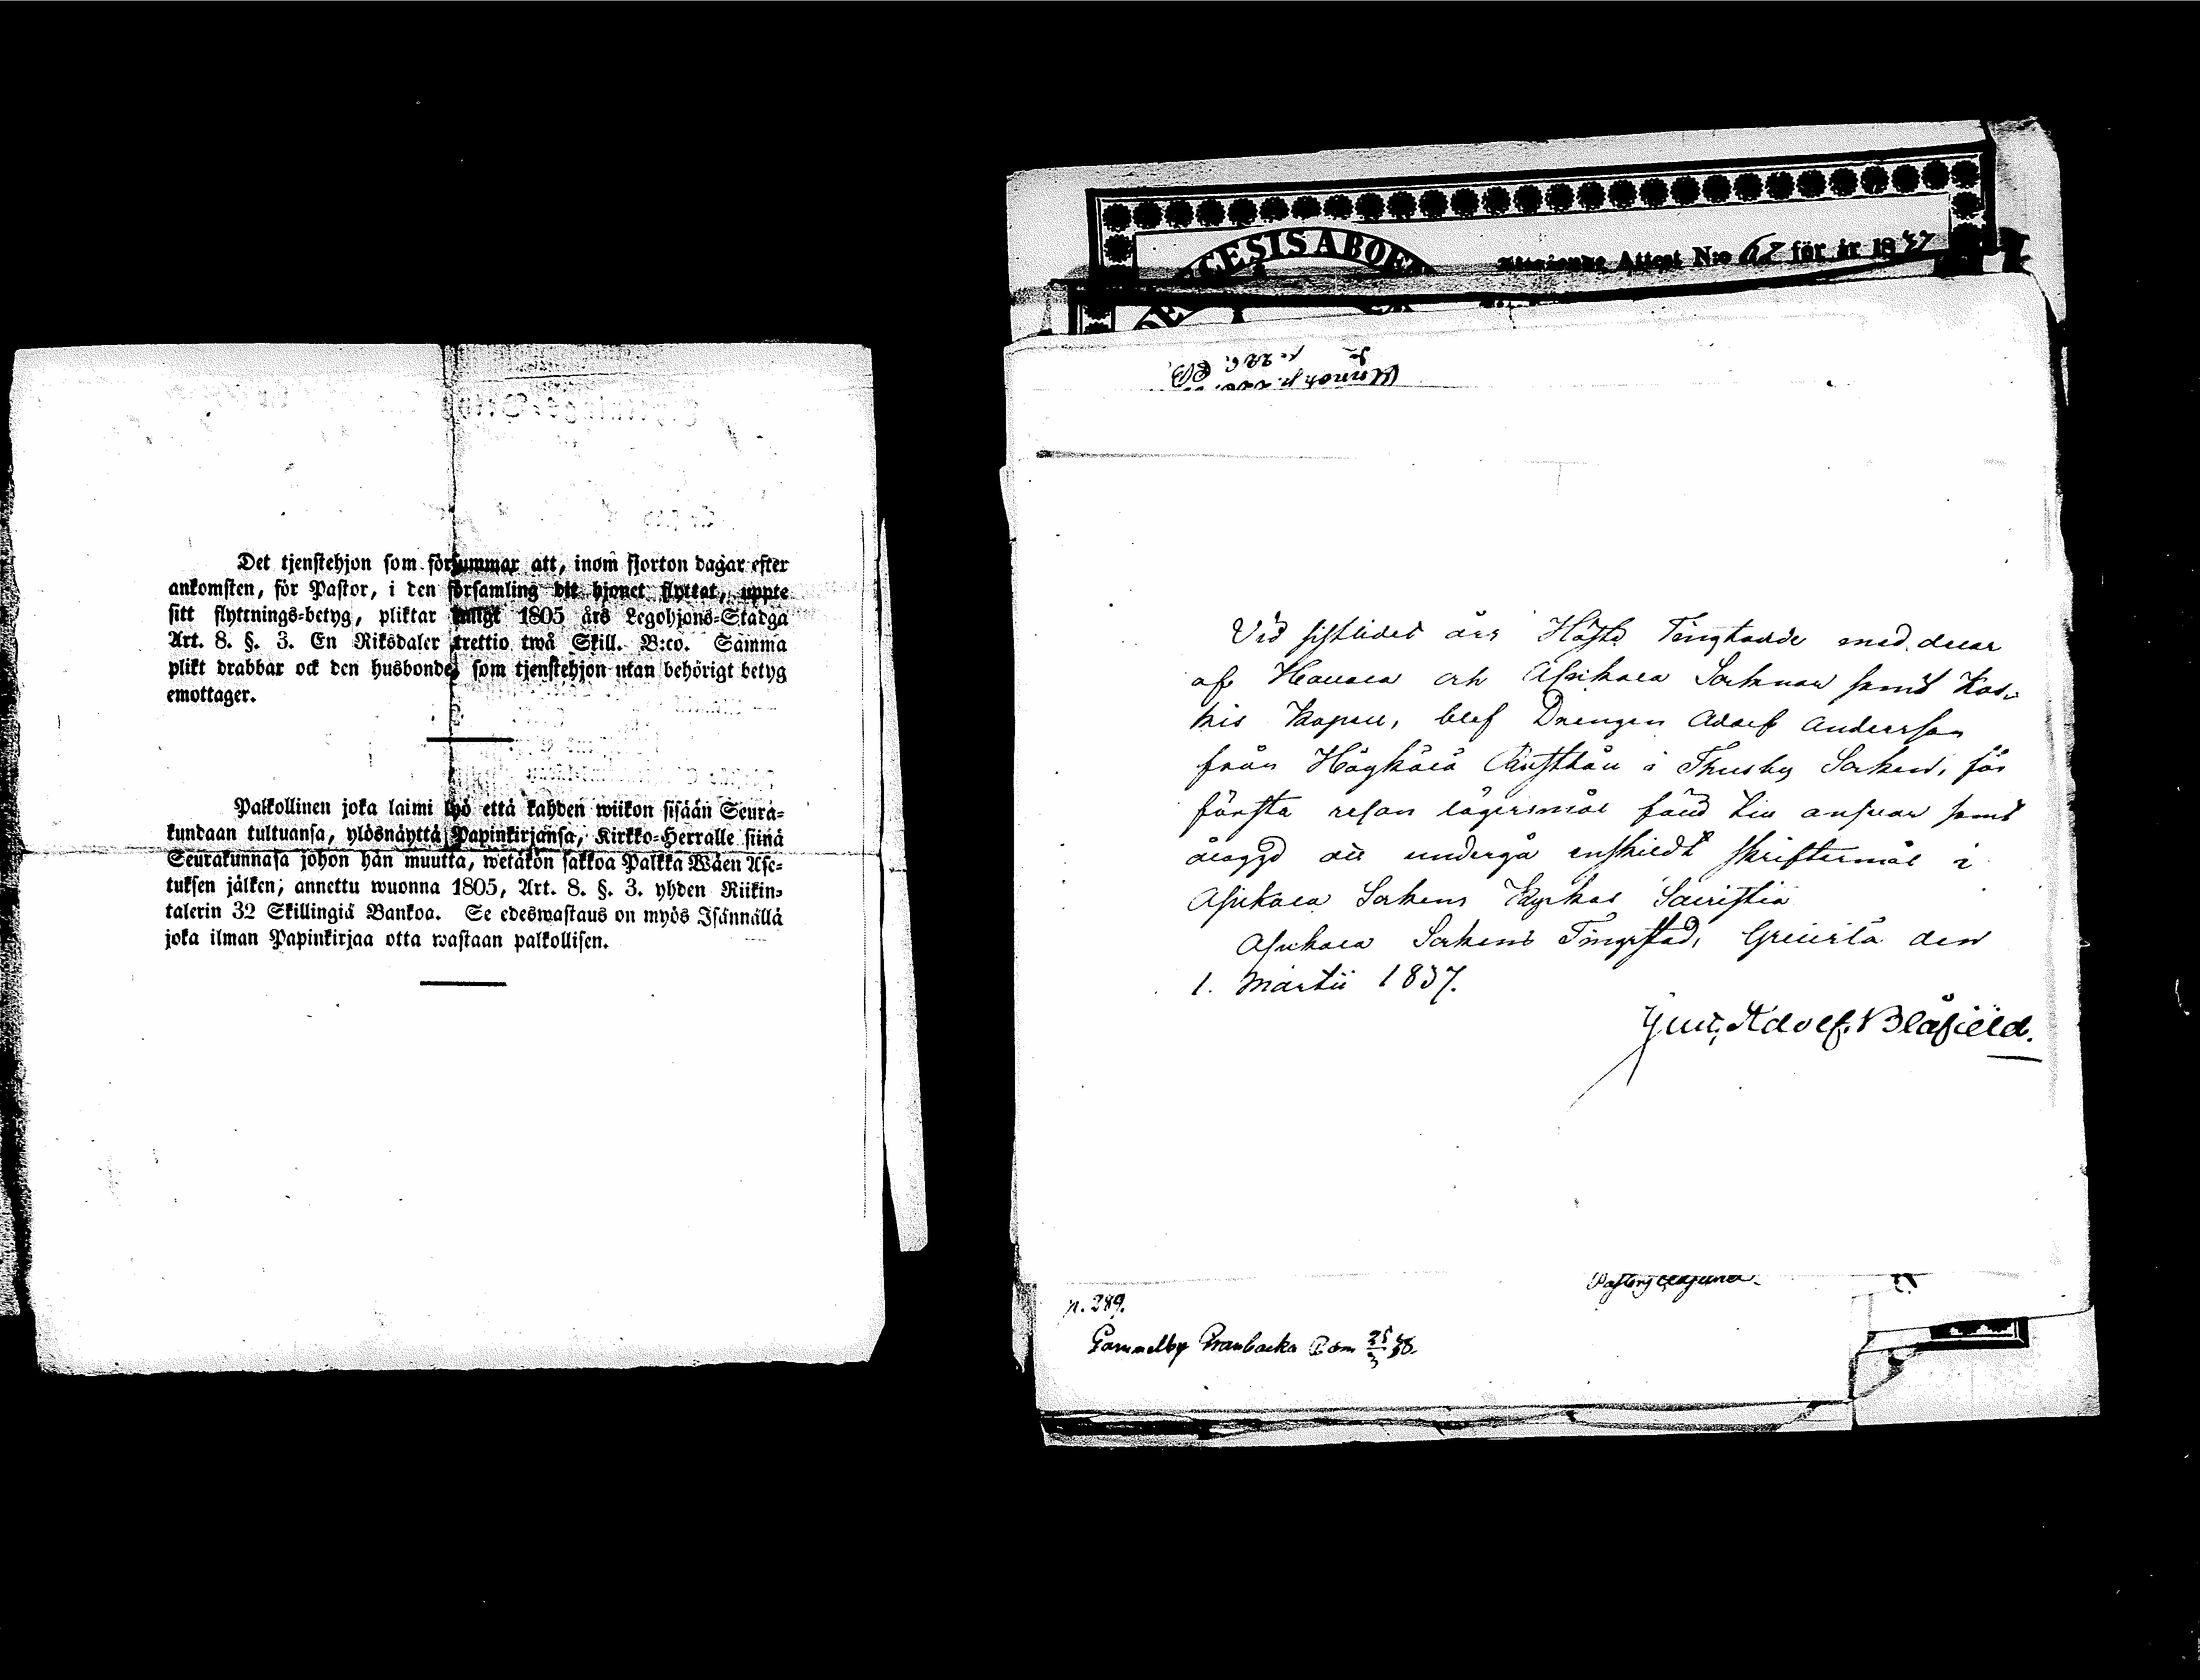 Det tjenstehjon som försummar att, inom fjorton dagar efter
ankomsten, för Pastor, i den församling dit hjonet flyttat, uppte
sitt flyttnings-betyg, pliktar enligt 1805 års Legohjons-Stadga
Art. 8. §. 3. En Riksdaler trettio twå Skill. B:co. Samma
plikt drabbar ock den husbonde, som tjenstehjon utan behörigt betyg
emottager.
Palkollinen joka laimi lyö että kahden wiikon sisään Seura-
kundaan tultuansa, ylösnäyttä Papinkirjansa, Kirkko-Herralle siinä
Seurakunnasa johon hän muutta, wetäkön sakkoa Palkka Wäen Ase-
tuksen jälken; annettu wuonna 1805, Art. 8. §. 3. yhden Riikin-
talerin 32 Skillingiä Bankoa. Se edeswastaus on myös Isännällä
joka ilman Papinkirjaa otta wastaan palkollisen.
CESIS ABOE
Attest N:o 62 för år 1837
p. 226.
Vid sistlidet års Höste Tingtande med delar
af Hauho och Asikala Socknar samt Kos-
kis Kapell, blef Drengen Adolf Andersson
från Högkälä Rusthåll i Thusby Socken, för
första resan lägersmål fäld till ansvar samt
ålaggd att undergå enskildt skriftermål i
Asikala Sockens Kyrkas Sacristia
Asikala Sockens Tingstad, den
1. Martii 1837.
Gust. Adolf. Blåfield.
p. 289.
Gammelby Granbacka 25/3 38.